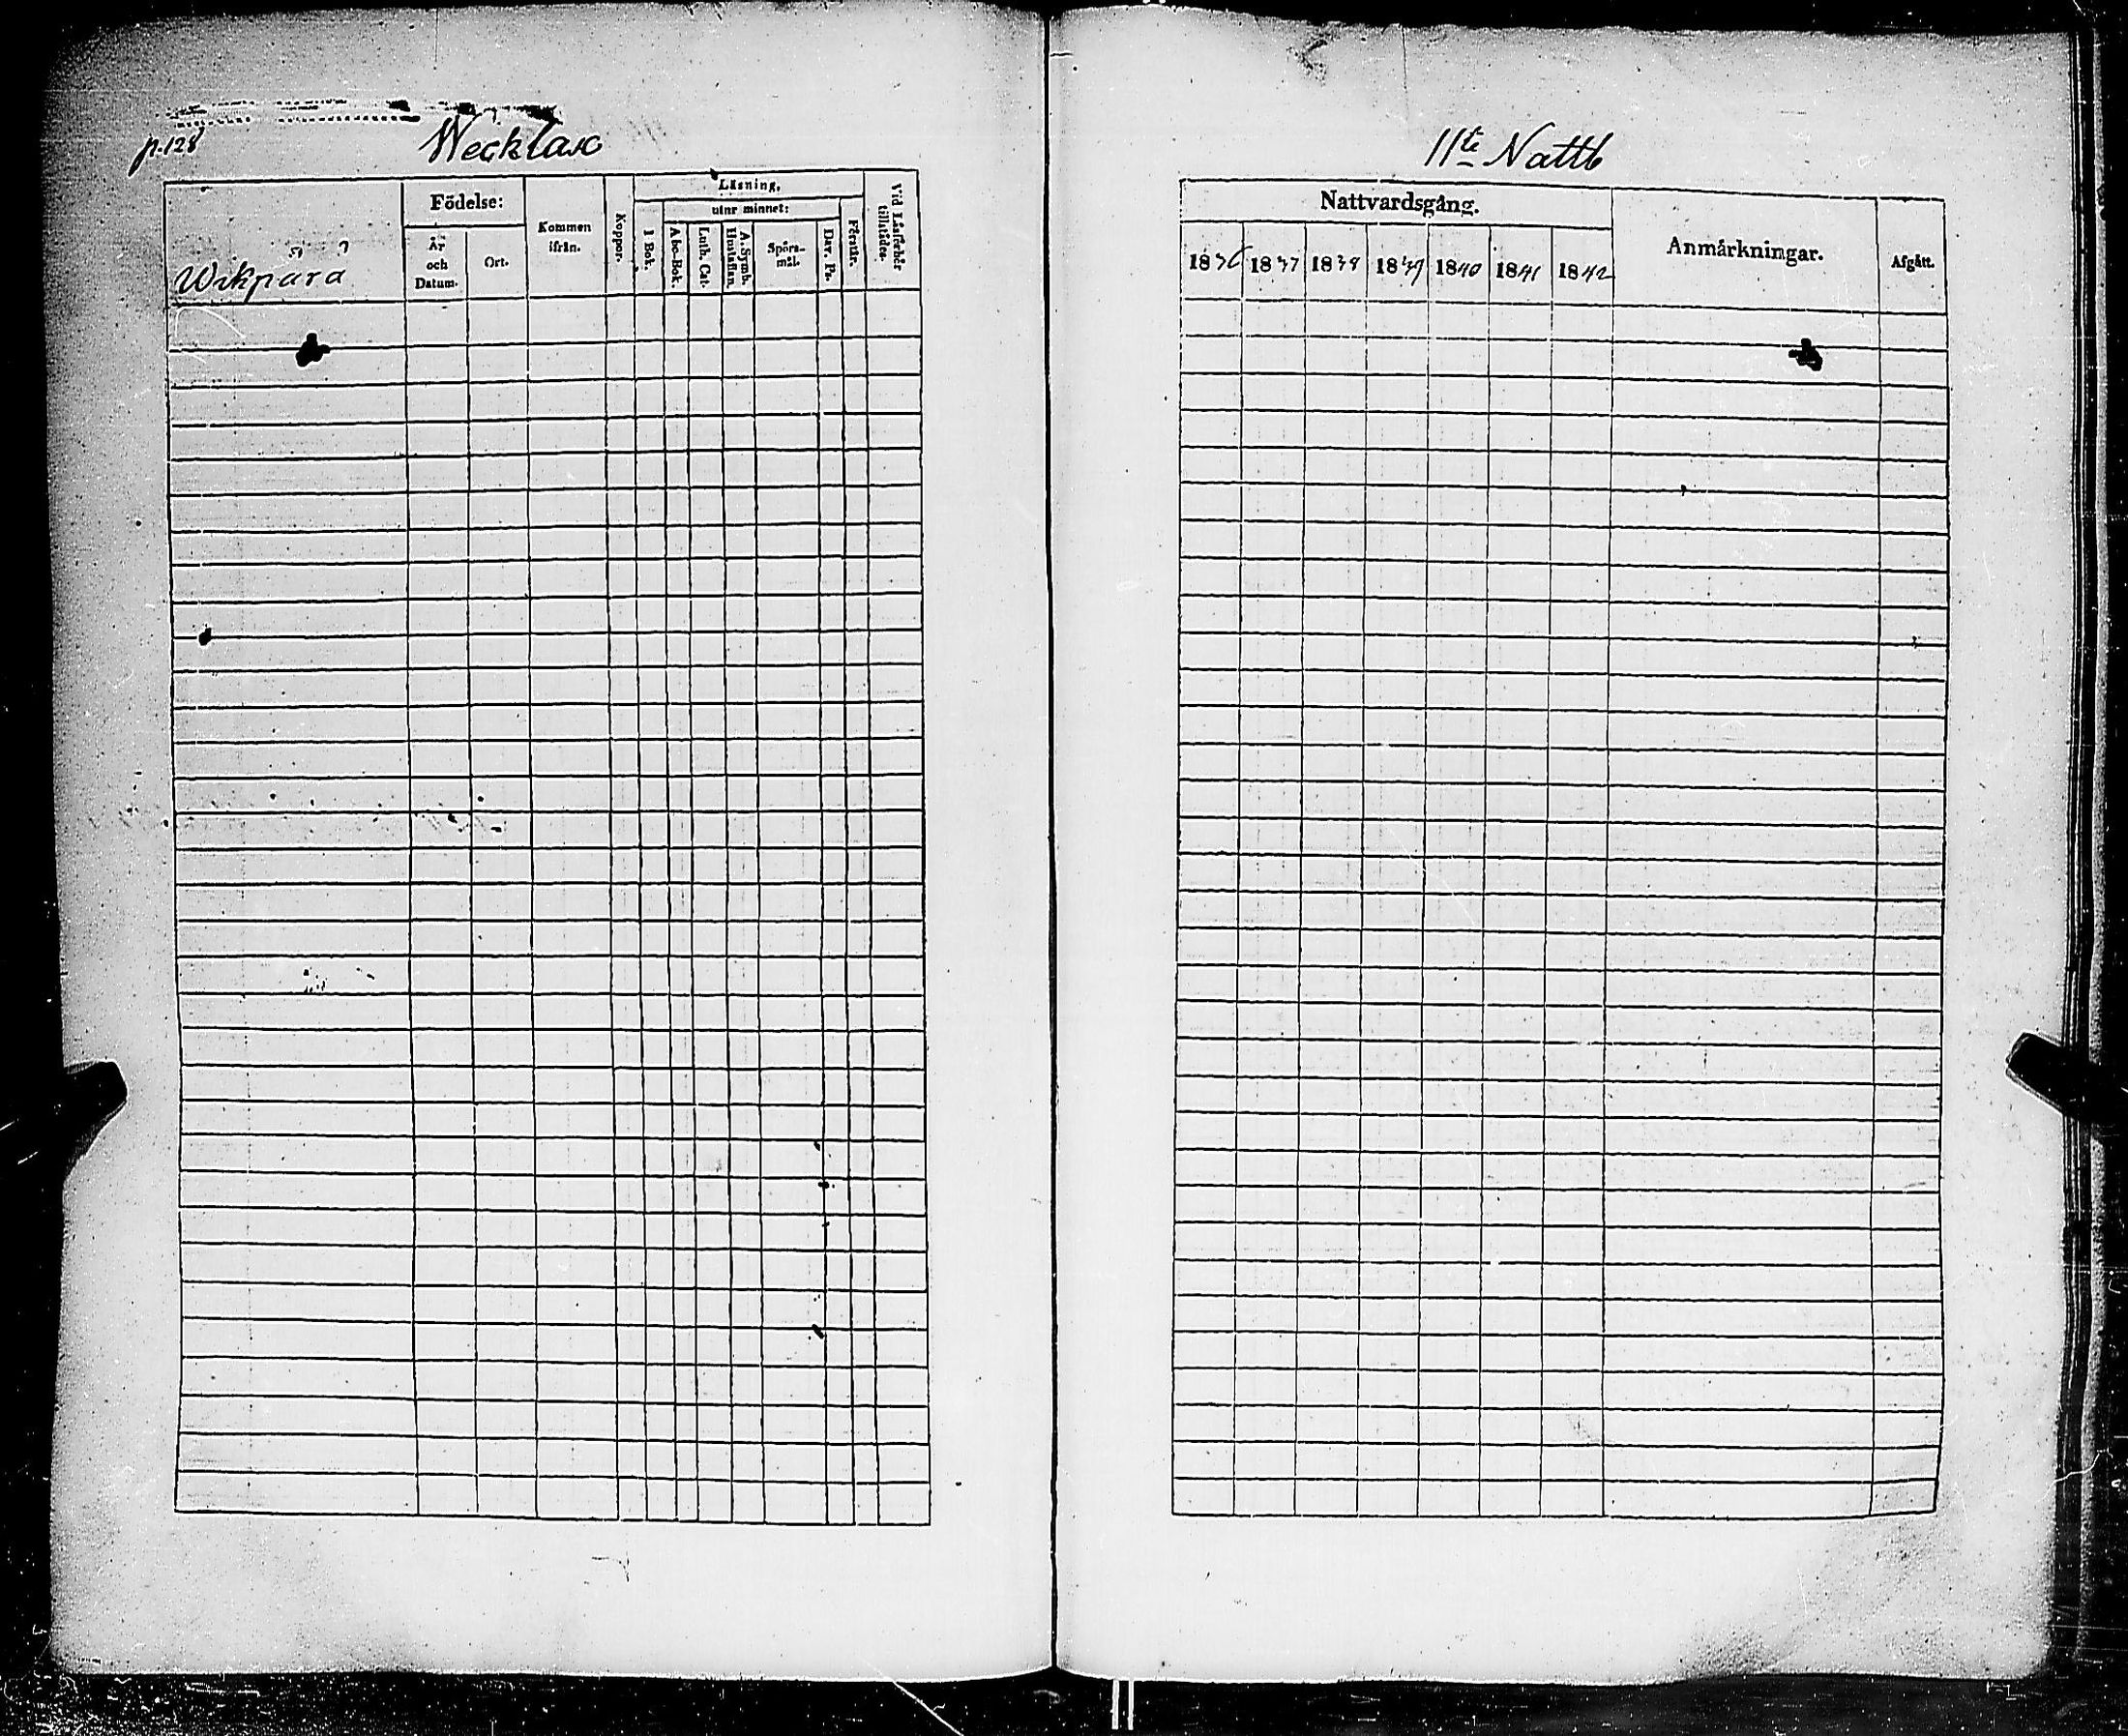 p. 128
Wecklax
11te Nattb
Födelse:
År och Datum.
Ort.
Kommen ifrån.
Koppor.
Läsning.
I Bok.
utur minnet:
Abc-Bok.
Luth. Cat.
A. Symb. Hustaflan.
Spörsmål.
Dav. Ps.
Förstår.
Vid Läsförhör tillstädes.
Wekpärä
Nattvardsgång.
1836 1837 1838 1839 1840 1841 1842
Anmärkningar.
Afgått.